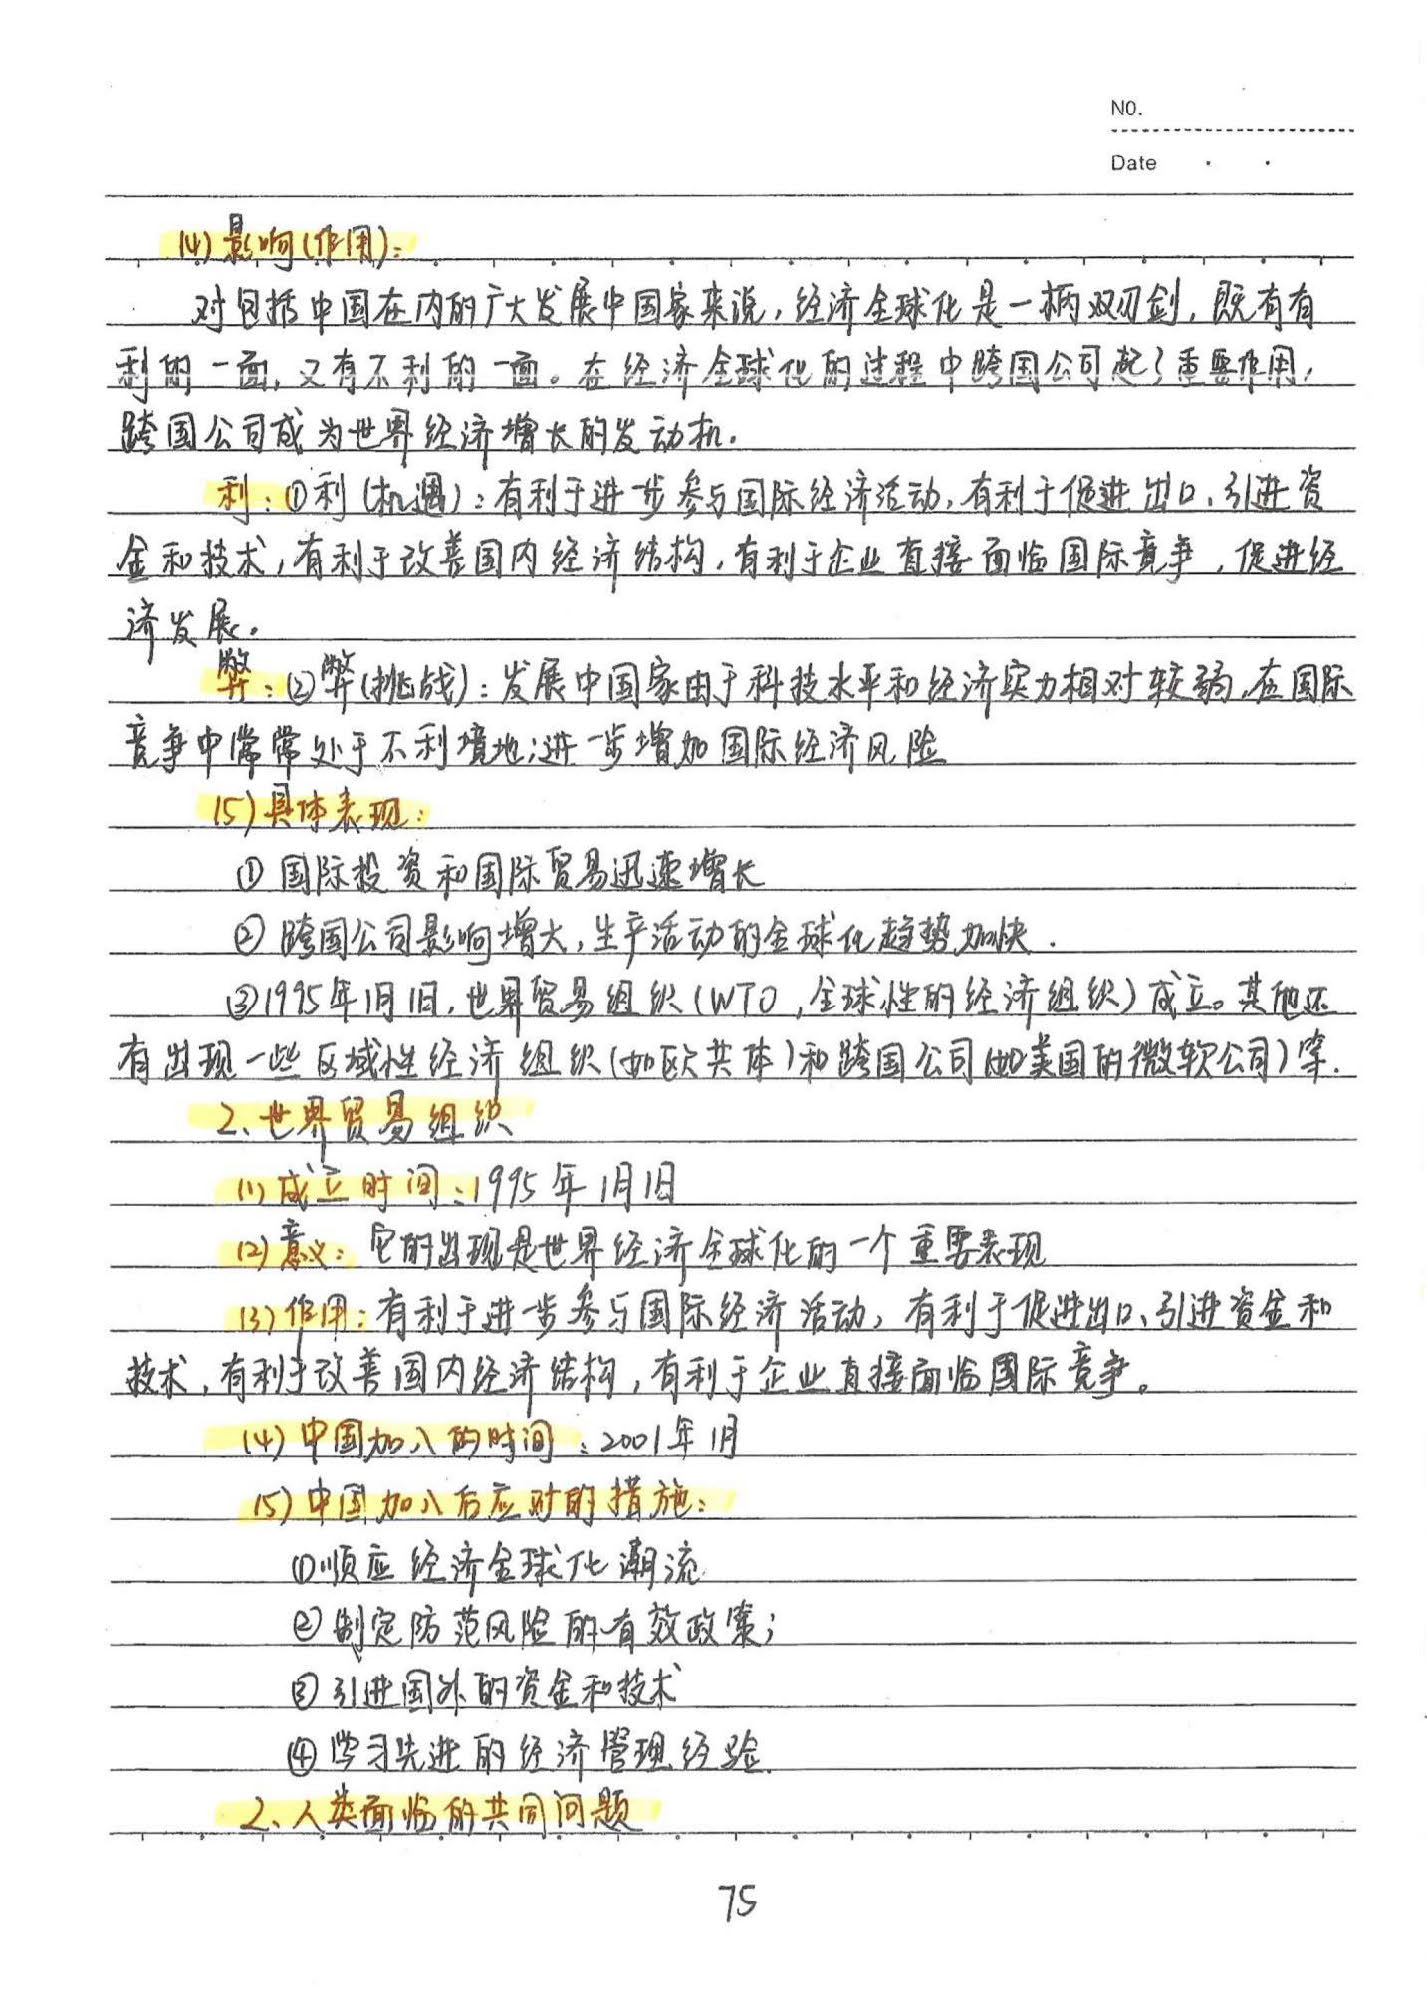 NO.
Date
(4)影响(作用):
对包括中国在内的广大发展中国家来说,经济全球化是一柄双刃剑,既有有
利的一面,又有不利的一面。在经济全球化的过程中跨国公司起了重要作用,
跨国公司成为世界经济增长的发动机.
利:①利(机遇):有利于进一步参与国际经济活动,有利于促进出口、引进资
金和技术,有利于改善国内经济结构,有利于企业直接面临国际竟争,促进经
济发展.
弊:②弊(挑战):发展中国家由于科技水平和经济实力相对较弱,在国际
竟争中常常处于不利境地;进一步增加国际经济风险
(5)具体表现:
①国际投资和国际贸易迅速增长
②跨国公司影响增大,生产活动的全球化趋势加快.
③1995年1月1日,世界贸易组织(WTO,全球性的经济组织)成立。其他还
有出现一些区域性经济组织(如欧共体)和跨国公司(如美国的微软公司)等.
2、世界贸易组织
(1)成立时间:1995年1月1日
(2)意义:它的出现是世界经济全球化的一个重要表现
(3)作用:有利于进一步参与国际经济活动,有利于促进出口、引进资金和
技术,有利于改善国内经济结构,有利于企业直接面临国际竟争。
(4)中国加入的时间:2001年1月
(5)中国加入后应对的措施:
①顺应经济全球化潮流
②制定防范风险的有效政策;
③引进国外的资金和技术
④学习先进的经济管理经验.
2、人类面临的共同问题
75